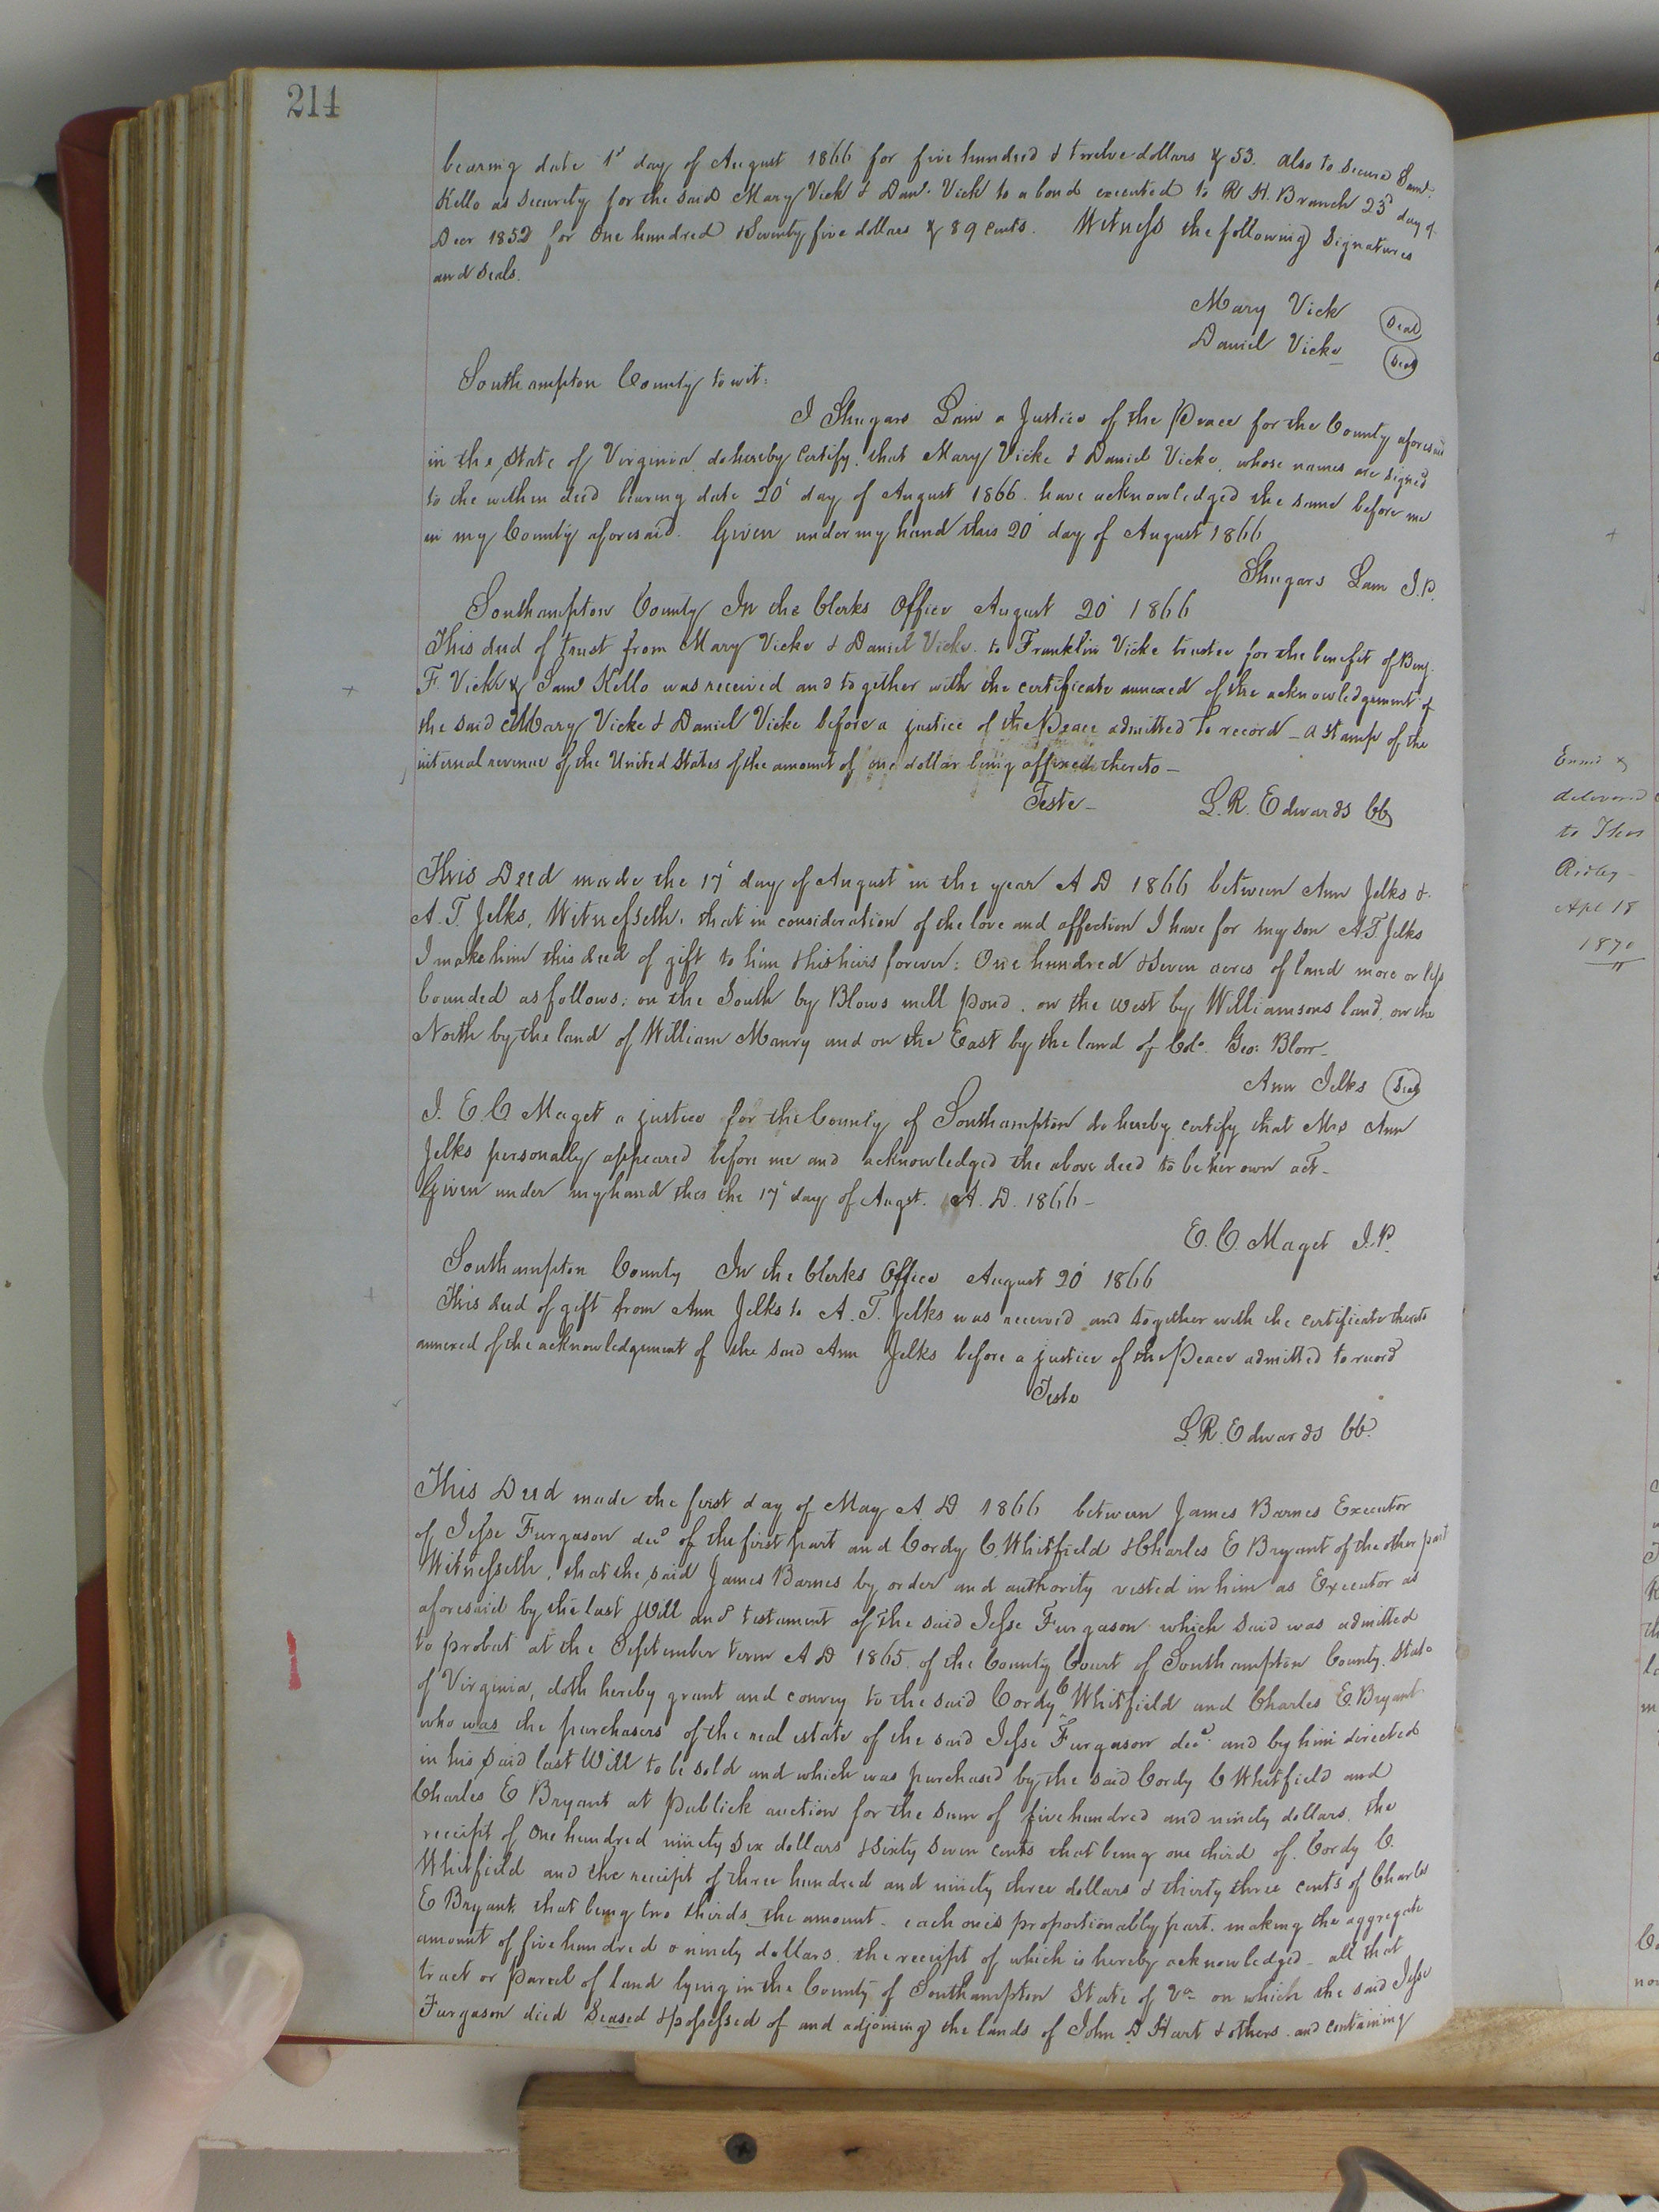 214
bearing date 1st day of August 1866 for five hundred & twelve dollars & 53. also to secure Saml
Kello as security for the said Mary Vick & Danl. Vick to a bond executed to R H. Branch 23d day of
Decr 1852 for One hundred & Seventy five dollars & 89 cents. Witness the following Signatures
and Seals.
Mary Vick Seal
Daniel Vick Seal
Southampton County to wit:
I Shugars Lain a Justice of the Peace for the County aforesaid
in the State of Virginia do hereby certify that Mary Vick & Daniel Vick, whose names are signed
to the within deed bearing date 20' day of August 1866. have acknowledged the same before me
in my County aforesaid. Given under my hand this 20' day of August 1866
Shugars Lain J.P.
Southampton County In the Clerks Office August 20' 1866
This deed of trust from Mary Vick & Daniel Vick to Franklin Vick trustee for the benefit of Benj.
F. Vick & Saml Kello was received and together with the certificate annexed of the acknowledgement of
the said Mary Vick & Daniel Vick before a justice of the Peace admitted to record – a Stamp of the
internal revenue of the United States of the amount of one dollar being affixed thereto –
Teste – L. R. Edwards CC
This Deed made the 17' day of August in the year A D 1866 between Ann Jelks &
A. T. Jelks, Witnesseth, that in consideration of the love and affection I have for my son A T Jelks
I make him this deed of gift to him & his heirs forever: One hundred & Seven acres of land more or less
bounded as follows; on the South by Blows mill pond, on the west by Williamsons land, on the
North by the land of William Manry and on the East by the land of Geo: Blow –
Ann Jelks Seal
I. E. C Maget a justice for the County of Southampton do hereby certify that Mrs Ann
Jelks personally appeared before me and acknowledged the above deed to be her own act –
Given under my hand this the 17' day of Augst. A. D. 1866 –
E. C. Maget J.P.
Southampton County In the Clerks Office August 20' 1866
This deed of gift from Ann Jelks to A. T. Jelks was received and together with the certificate thereto
annexed of the acknowledgement of the said Ann Jelks before a justice of the Peace admitted to record
Teste
L. R. Edwards CC.
This Deed made the first day of May A D 1866 between James Barnes Executor
of Jesse Furgason decd of the first part and Cordy C. Whitfield & Charles E Bryant of the other part
Witnesseth, that the said James Barnes by order and authority vested in him as Executor as
aforesaid by the last Will and testament of the said Jesse Furgason which said was admitted
to probat at the September term A D 1865. of the County Court of Southampton County, State
of Virginia, doth hereby grant and convey to the said Cordy C Whitfield and Charles E. Bryant
who was the purchasers of the real estate of the said Jesse Furgason decd. and by him directed
in his said last Will to be sold and which was purchased by the said Cordy C Whitfield and
Charles E Bryant at publick auction for the sum of five hundred and ninety dollars, the
receipt of One hundred ninety six dollars & sixty seven cents that being one third of Cordy C.
Whitfield and the receipt of three hundred and ninety three dollars & thirty three cents of Charles
E Bryant, that being two thirds the amount – each ones proportionably part, making the aggregate
amount of five hundred & ninety dollars, the receipt of which is hereby acknowledged – all that
tract or parcel of land lying in the County of Southampton State of Va on which the said Jesse
Furgason died Seased & possessed of and adjoining the lands of John D Hart & others – and containing
delivered
to Thos
Ridley –
Apl 18
1870